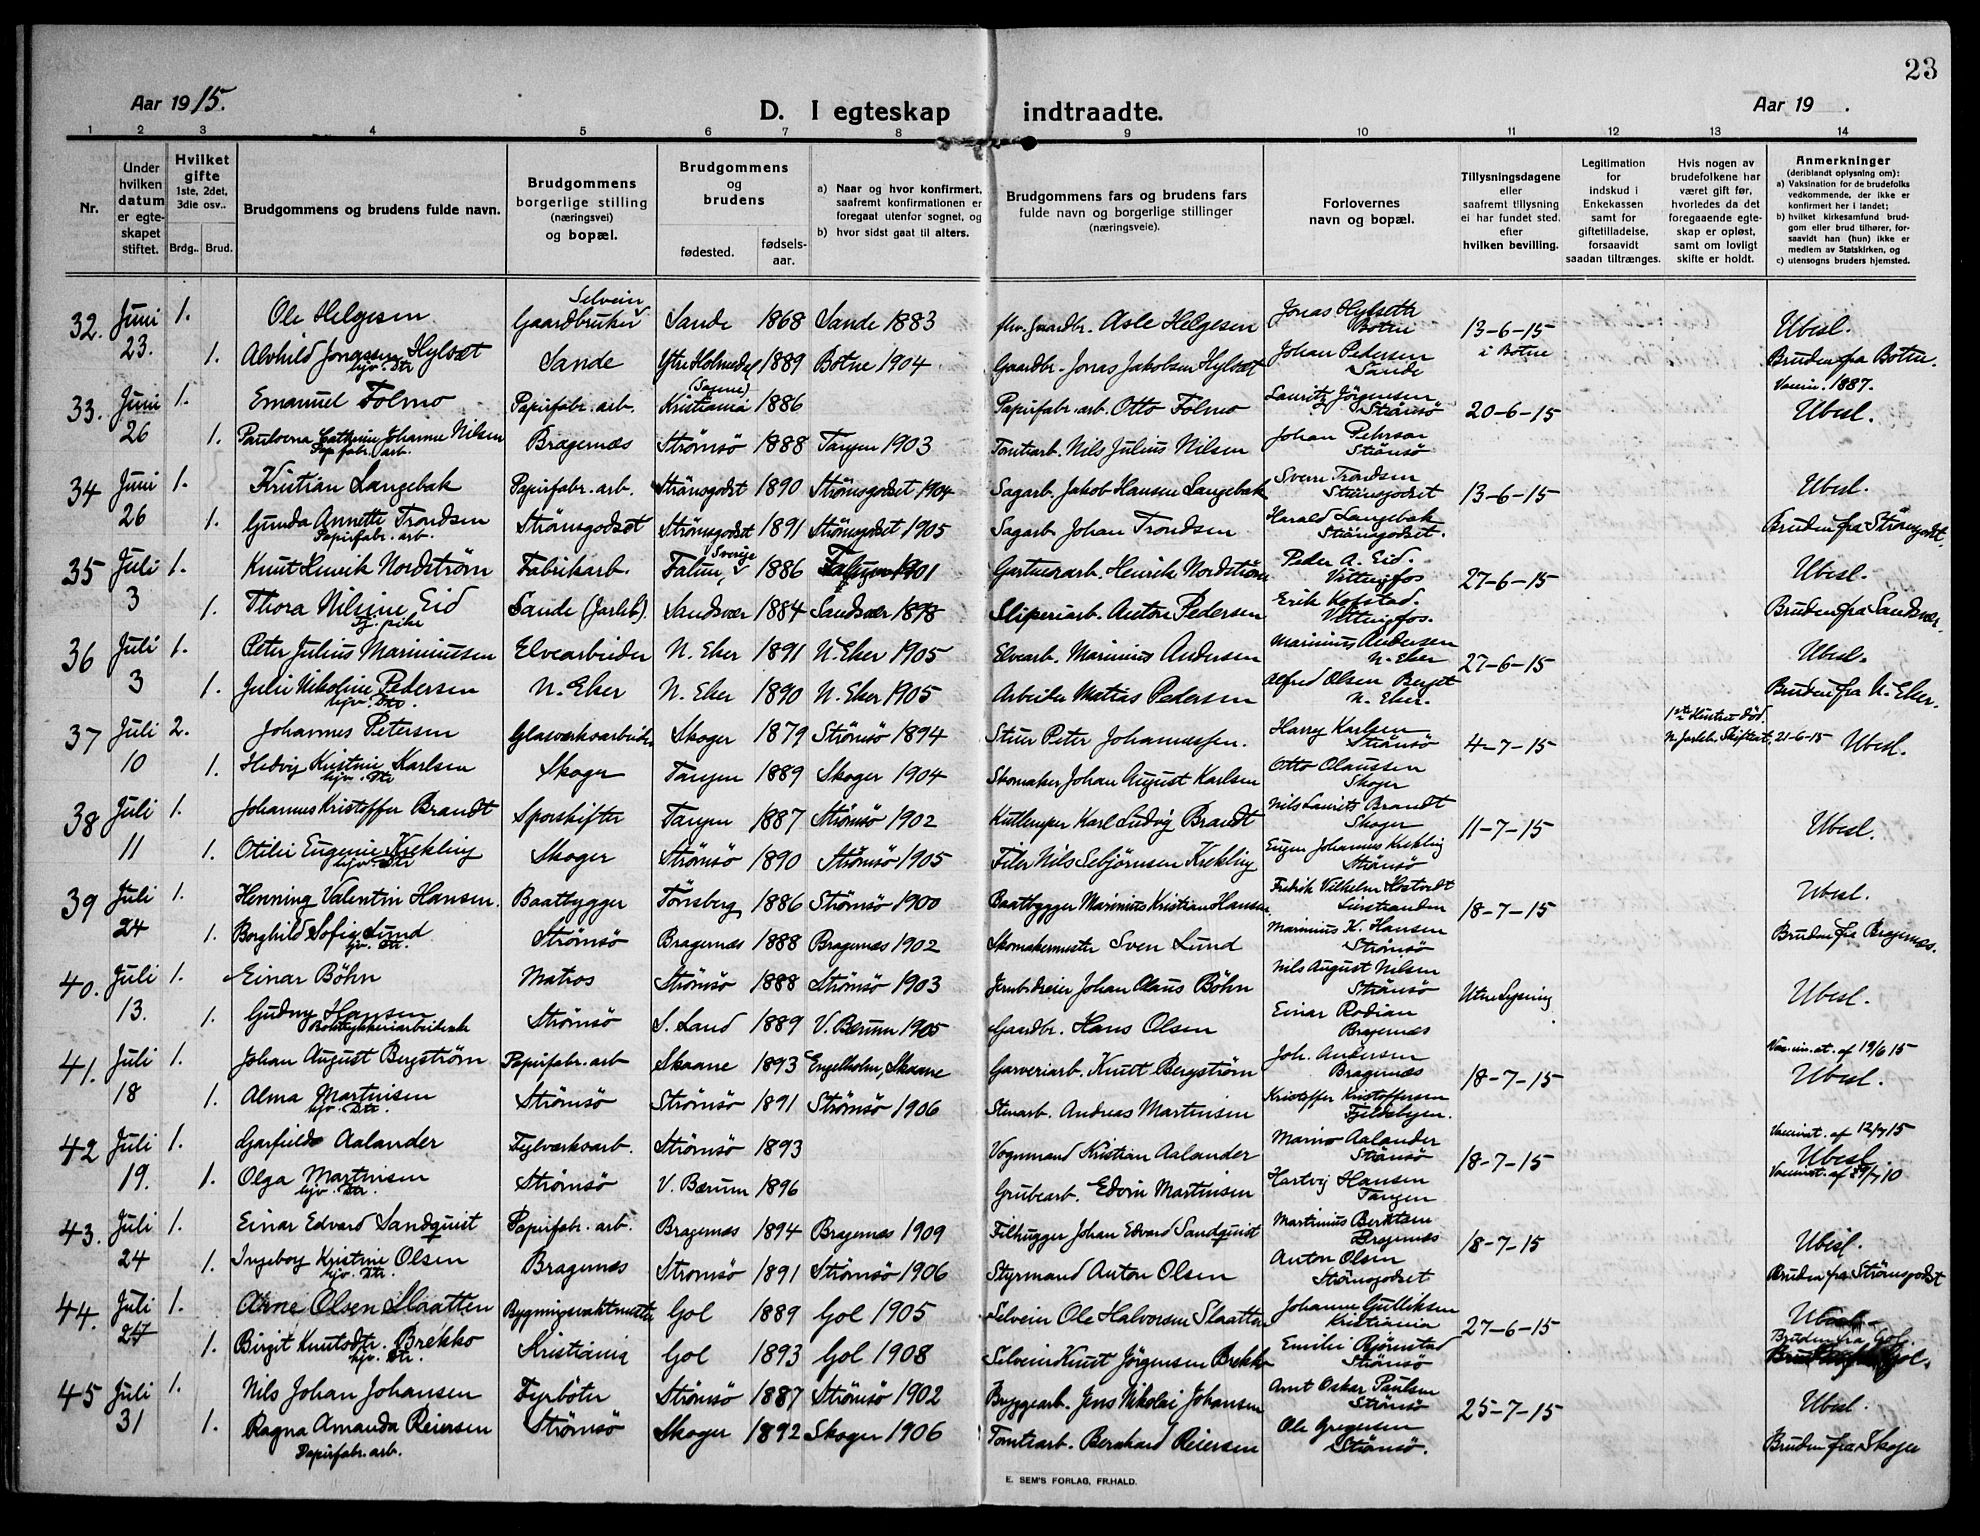 23
Aar 1915.
D. I egteskap indtraadte.
Aar 19 .
1 2 3 4 5 6 7 8 9 10 11 12 13 14
Nr.
Under hvilken datum er egteskapet stiftet.
Hvilket gifte 1ste, 2det, 3die osv.. Brdg.. Brud.
Brudgommens og brudens fulde navn.
Brudgommens borgerlige stilling (næringsvei) og bopæl.
Brudgommens og brudens fødested. fødselsaar.
a) Naar og hvor konfirmert, saafremt konfirmationen er foregaat utenfor sognet, og
b) hvor sidst gaat til alters.
Brudgommens fars og brudens fars fulde navn og borgerlige stillinger (næringsveie).
Forlovernes navn og bopæl.
Tillysningsdagene eller saafremt tillysning ei har fundet sted. efter hvilken bevilling.
Legitimation for indskud i Enkekassen samt for giftetilladelse, forsaavidt saadan tiltrænges.
Hvis nogen av brudefolkene har været gift før, hvorledes da det foregaaende egteskap er opløst, samt om lovligt skifte er holdt.
Anmerkninger (deriblandt oplysning om): a) Vaksination for de brudefolks vedkommende, der ikke er konfirmert her i landet; b) hvilket kirkesamfund brudgom eller brud tilhører, forsaavidt han (hun) ikke er medlem av Statskirken, og c) utensogns bruders hjemsted.
32. Juni 23. 1. Ole Helgesen Selveier Gaardbruker Sande 1868 Sande 1883 fhv. gaardbr. Asle Helgesen Jonas Hylseth Botne 13-6-15 i Botne Ubesl.
1. Alvhild Jonassen Hylsæt hjv. Dtr Sande Ytre Holmedal 1889 Botne 1904 Gaardbr. Jonas Jakobsen Hylsæt Johan Pedersen Sande Bruden fra Botne.
33. Juni 26 1. Emanuel Folmo Papirfabr. arb. (Sogne) Kristiania 1886 Papirfabr. arb. Otto Folmo Lauritz Jörgensen Strömsö 20-6-15 Vaccin. 1887. Ubesl.
1. Paulovna Cathrine Johanne Nilsen Papfabr. arb. Bragernæs Strömsö 1888 Tangen 1903 Tomtearb. Nils Julius Nilsen Johan Pehrson Strömsö
34 Juni 26 1. Kristian Langebak Papirfabr. arb. Strömsgodset 1890 Strömsgodset 1904 Sagarb. Jakob Hansen Langebak Sven Trondsen Strömsgodset 13-6-15 Ubesl.
1. Gunda Annette Trondsen Papirfabr. arb. Strömsgodset Strömsgodset 1891 Strömsgodset 1905 Sagarb. Johan Trondsen Harald Langebak Strömsgodset. Bruden fra Strömsgodset.
35 Juli 3 1. Knut Henrik Nordström Fabrikarb. Falun, Sverige 1886 Falun 1901 Gartnerarb. Henrik Nordström Peder A. Eid. Vittingfos 27-6-15 Ubesl.
1. Thora Nilsine Eid Tj. pike Sande (Jarlsb). Sandsvær 1884 Sandsvær 1898 Sliperiarb. Anton Pedersen Erik Kofstad. Vittingfos. Bruden fra Sandsvær.
36 Juli 3 1. Peter Julius Marinussen Elvearbeider N. Eker 1891 N. Eker 1905 Elvearb. Marinius Andersen Marinius Andersen N. Eker 27-6-15 Ubesl.
1. Julie Nikoline Pedersen hjv. Dtr. N. Eker N. Eker 1890 N. Eker 1905 Arbeider Matias Pedersen Alfred Olsen Berget N. Eker. Bruden fra N. Eker.
37 Juli 10 2. Johannes Petersen Glasværksarbeider Skoger 1879 Strömsö 1894 Stuer Peter Johannessen. Harry Karlsen Strömsö 4-7-15 1ste Hustru död. N. Jarlsb. Skifteret 21-6-15 Ubesl.
1. Hedvig Kristine Karlsen hjv. Dtr Skoger Tangen 1889 Skoger 1904 Skomaker Johan August Karlsen Otto Olaussen Skoger
38 Juli 11 1. Johannes Kristoffer Brandt Sporskifter Tangen 1887 Strömsö 1902 Karl Ludvig Brandt Nils Laurits Brandt Skoger 11-7-15 Ubesl.
1. Otilie Eugenie Krekling hjv. Dtr Skoger Strömsö 1890 Strömsö 1905 Filer Nils Sebjörnsen Krekling Eugen Johannes Krekling Strömsö
39 Juli 24 1. Henning Valentin Hansen. Baatbygger Tönsberg 1886 Strömsö 1900 Baatbygger Marinius Kristian Hansen. Fredrik Vilhelm Hostvedt Linstranden 18-7-15 Ubesl.
1. Borghild Sofie Lund hjv. Dtr. Strömsö Bragernæs 1888 Bragernæs 1902 Skomakermester Sven Lund Marinius K. Hansen Strömsö Bruden fra Bragernæs.
40. Juli 13. 1. Einar Böhn Matros Strömsö 1888 Strömsö 1903 Jernbdreier Johan Olaus Böhn Nils August Nilsen Strömsö Uten lysning Ubesl.
1. Gudny Hansen Boktrykkeriarbeiderske Strömsö S. Land 1889 V. Bærum 1905 Gaardbr. Hans Olsen Einar Rodian Bragernæs
41. Juli 18 1. Johan August Bergström Papirfabr. arb Skaane 1893 Engelholm, Skaane Garveriarb. Knut Bergström Joh. Andersen Bragernæs 18-7-15 Vaccin. at. af 19/6 15 Ubesl.
1. Alma Martinsen hjv. Dtr Strömsö Strömsö 1891 Strömsö 1906 Stenarb. Andreas Martinsen Kristoffer Kristoffersen Fjeldsbyen.
42 Juli 19. 1. Garfield Aalander Fyllværksarb. Strömsö 1893 Vognmand Kristian Aalander Marino Aalander Strömsö 18-7-15 Vaccinat. af 12/7 15 Ubesl.
1. Olga Martinsen hjv. Dtr. Strömsö V. Bærum 1896 Grubearb. Edvin Martinsen Hartvig Hansen Tangen Vaccinat. af 29/7 10
43. Juli 24 1. Einar Edvard Sandquist Papirfabr. arb. Bragernæs 1894 Bragernæs 1909 Filhugger Johan Edvard Sandquist Martinius Berntsen Bragernæs 18-7-15 Ubesl.
1. Ingeborg Kristine Olsen hjv. Dtr. Bragernæs Stromsö 1891 Strömsö 1906 Styrmand Anton Olsen Anton Olsen Strömsgodset Bruden fra Strömsgodset
44. Juli 27 1. Arne Olsen Slaatten Bygningsvaktmester Gol 1889 Gol 1905 Selveier Ole Halvorsen Slaatten Johanne Gulliksen Kristiania 27-6-15 Ubesl.
1. Birgit Knutsdtr. Brekko hjv. Dtr. Kristiania Gol 1893 Gol 1908 Selveier Knut Jörgensen Brekko Emilie Björnstad Strömsö Bruden fra Gol.
45 Juli 31 1. Nils Johan Johansen Fyrböter Strömsö 1887 Strömsö 1902 Bryggearb. Jens Nikolai Johansen Arnt Oskar Paulsen Strömsö 25-7-15 Ubesl.
1. Ragna Amanda Reiersen Papirfabr. arb. Strömsö Skoger 1892 Skoger 1906 Tomtearb. Bernhard Reiersen Ole Gregersen Strömsö. Bruden fra Skoger
E. SEM'S FORLAG, FR.HALD.